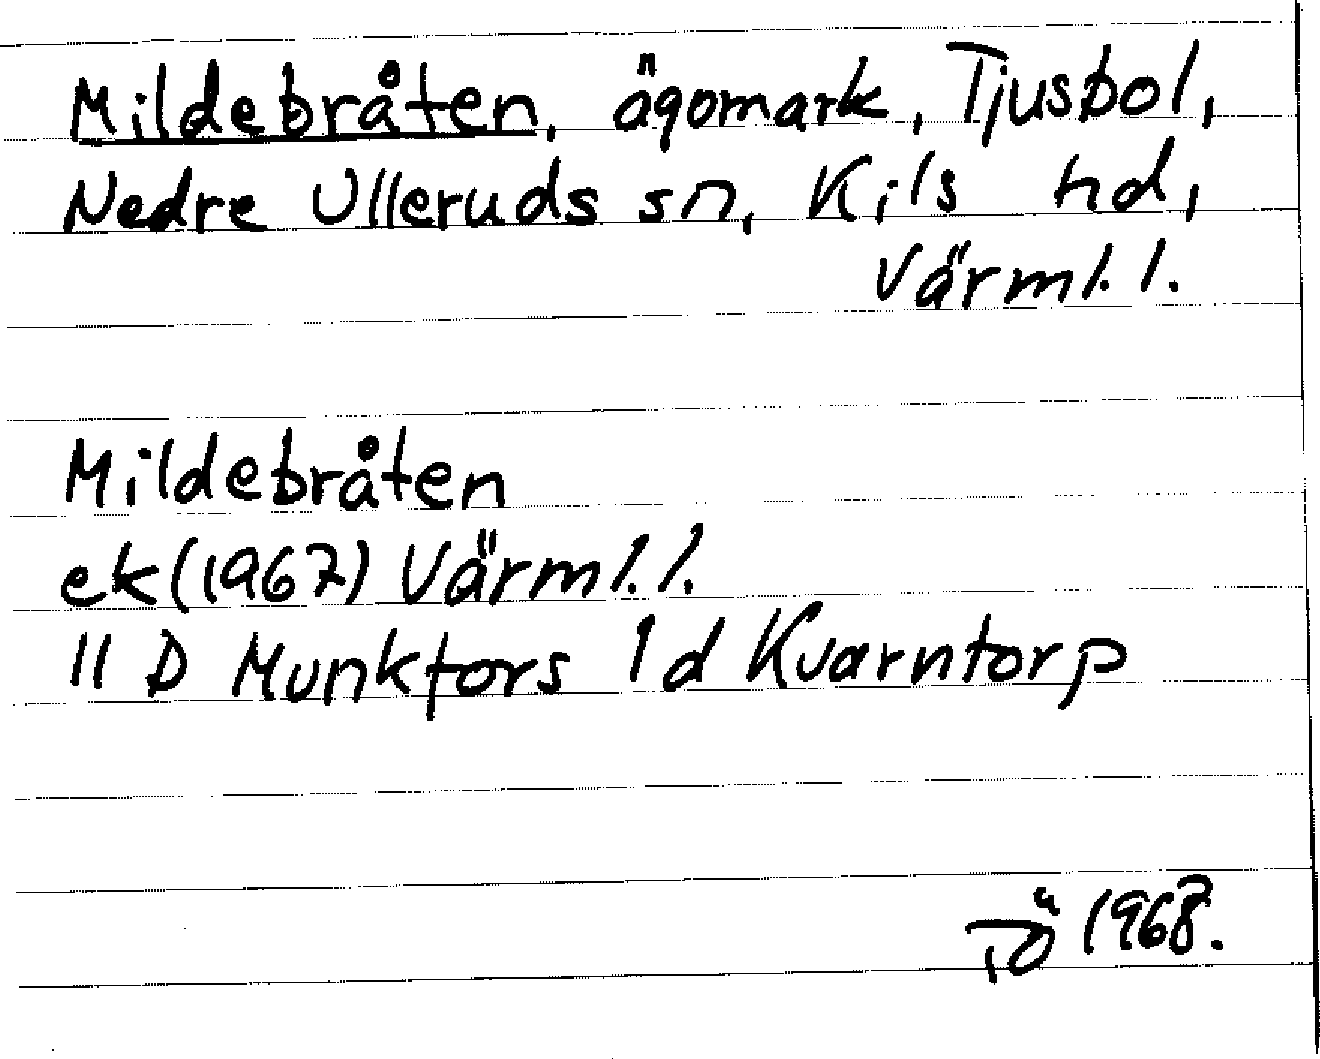 Mildebråten, ägomark, Tjusbol,
Nedre Ulleruds sn, Kils hd,
Värml. l.
Mildebråten
ek (1967) Värml. l.
11 D Munkfors 1 d Kvarntorp
TÖ 1968.